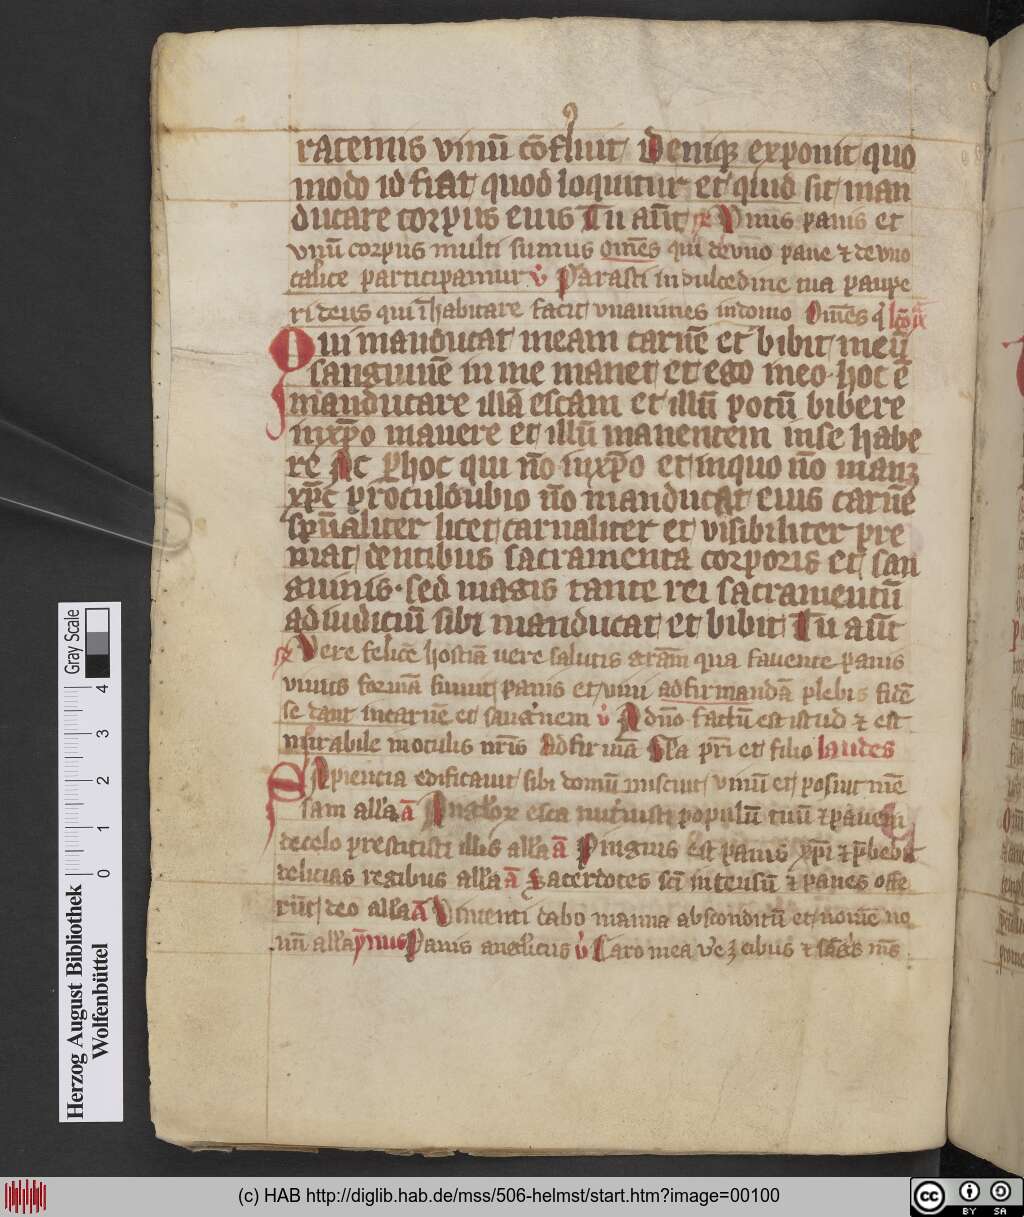 racemis vinū cōfluit Deniqꝫ exponit quo
modo id fiat quod loquitur et quid sit man
ducare corpus eius Tu aūt ꝶ Vnus panis et
vnū corpus multi sumus om̄es qui de vno pane ⁊ de vno
calice participamur v̇ Parasti in dulcedine tua paupe
ri deus qui īhabitare facit vnanimes in domo Om̄es q
Qui manducat meam carnē et bibit meū
sanguinē in me manet et ego in eo hoc ē
manducare illā escam et illū potū bibere
in xp̄o manere et illū manentem in se habe
re Ac ꝑ hoc qui nō in xp̄o et in quo nō manꝫ
xp̄c procul dubio nō manducat eius carnē
sp̄ualiter licet carnaliter et visibiliter pre
mat dentibus sacramenta corporis et san
guinis sed magis tante rei sacramentū
ad iudiciū sibi manducat et bibit Tu aūt
ꝶ Vere felicē hostiā vere salutis grām qua favente panis
vivus formā sumit panis et vini ad firmandā plebis fidē
se dant in carnē et sanguinem v̇ A dn̄o factū est istud ⁊ est
mirabile in oculis nr̄is Ad firmā Gl̄a pr̄i et filio laudes
Sapiencia edificavit sibi domū miscuit vinū et posuit mē
sam alla ā Angl̓oꝝ esca nutrivisti populū tuū ⁊ panem
de celo prestitisti illis alla ā Pinguis est panis xp̄i ⁊ p̄bebit
delicias regibus alla ā Sacerdotes sc̄i incensū ⁊ panes offe
rūt deo alla ā Vincenti dabo manna absconditū et nomē no
vū alla ymnus Panis angelicus v̇ Caro mea ve ꝫ cibus ⁊ sāgˀs mˀs
Gray Scale
4
3
2
1
0
Herzog August Bibliothek
Wolfenbüttel
(c) HAB http://diglib.hab.de/mss/506-helmst/start.htm?image=00100
cc BY SA